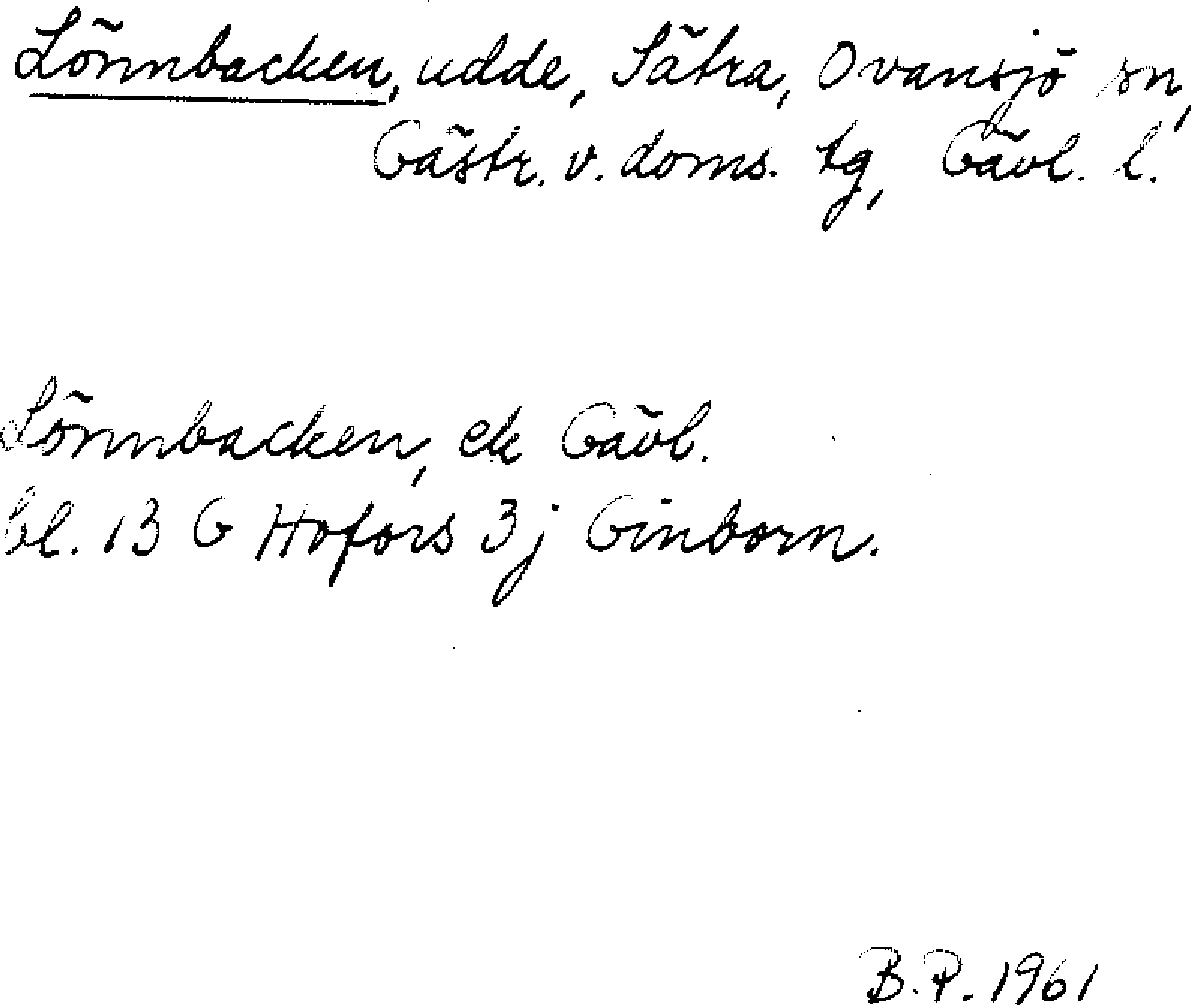 Lönnbacken, udde, Sätra, Ovansjö sn,
Gästr. v. doms. tg, Gävl. l.
Lönnbacken, ek Gävl.
bl. 13 G Hofors 3j Ginborn.
B.P. 1961